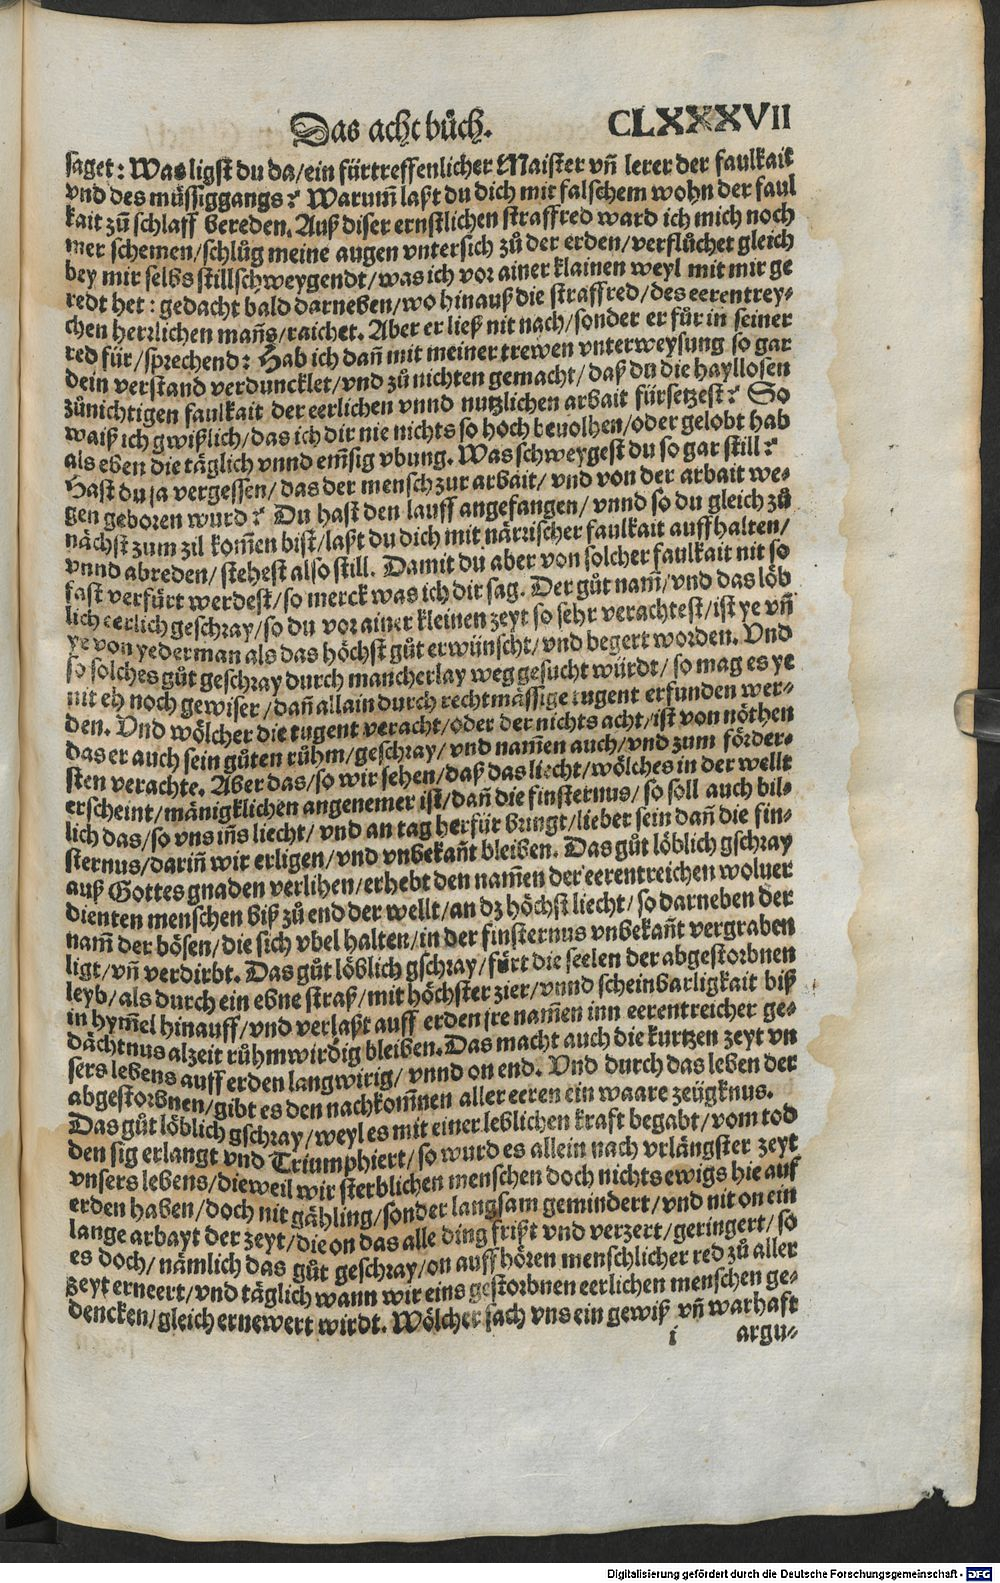 Das acht bůch. CLXXXVII
saget: Was ligst du da/ein fürtreffenlicher Maister vñ lerer der faulkait
vnd des müssiggangs? Warum̃ laßt du dich mit falschem wohn der faul
kait zů schlaff bereden. Auß diser ernstlichen straffred ward ich mich noch
mer schemen/schlůg meine augen vntersich zů der erden/verflůchet gleich
bey mir selbs stillschweygendt/was ich vor ainer klainen weyl mit mir ge
redt het: gedacht bald darneben/wo hinauß die straffred/des eerentrey-
chen herrlichen mañs/raichet. Aber er ließ nit nach/sonder er fůr in seiner
red für/sprechend: Hab ich dañ mit meiner trewen vnterweysung so gar
dein verstand verduncklet/vnd zů nichten gemacht/daß du die hayllosen
zůnichtigen faulkait der eerlichen vnnd nutzlichen arbait fürsetzest? So
waiß ich gwißlich/das ich dir nie nichts so hoch beuolhen/oder gelobt hab
als eben die täglich vnnd em̃sig vbung. Was schweygest du so gar still?
Hast du ja vergessen/das der mensch zur arbait/vnd von der arbait we-
gen geboren wurd? Du hast den lauff angefangen/vnnd so du gleich zů
nächst zum zil kom̃en bist/laßt du dich mit närrischer faulkait auffhalten/
vnnd abreden/stehest also still. Damit du aber von solcher faulkait nit so
fast verfürt werdest/so merck was ich dir sag. Der gůt nam̃/vnd das löb
lich eerlich geschray/so du vor ainer kleinen zeyt so sehr verachtest/ist ye vñ
ye von yederman als das höchst gůt erwünscht/vnd begert worden. Vnd
so solches gůt geschray durch mancherlay weg gesucht würdt/so mag es ye
nit eh noch gewiser/dañ allain durch rechtmässige tugent erfunden wer-
den. Vnd wölcher die tugent veracht/oder der nichts acht/ist von nöthen
das er auch sein gůten růhm/geschray/vnd nam̃en auch/vnd zum förder-
sten verachte. Aber das/so wir sehen/daß das liecht/wölches in der wellt
erscheint/mänigklichen angenemer ist/dañ die finsternus/so soll auch bil-
lich das/so vns iñs liecht/vnd an tag herfür bringt/lieber sein dañ die fin-
sternus/dariñ wir erligen/vnd vnbekañt bleiben. Das gůt löblich gschray
auß Gottes gnaden verlihen/erhebt den nam̃en der eerentreichen woluer
dienten menschen biß zů end der wellt/an dz höchst liecht/so darneben der
nam̃ der bösen/die sich vbel halten/in der finsternus vnbekañt vergraben
ligt/vñ verdirbt. Das gůt löblich gschray/fürt die seelen der abgestorbnen
leyb/als durch ein ebne straß/mit höchster zier/vnnd scheinbarligkait biß
in hym̃el hinauff/vnd verlaßt auff erden jre nam̃en inn eerentreicher ge-
dächtnus alzeit růhmwirdig bleiben. Das macht auch die kurtzen zeyt vn
sers lebens auff erden langwirig/vnnd on end. Vnd durch das leben der
abgestorbnen/gibt es den nachkom̃nen aller eeren ein waare zeügknus.
Das gůt löblich gschray/weyl es mit einer leblichen kraft begabt/vom tod
den sig erlangt vnd Triumphiert/so wurd es allein nach vrlängster zeyt
vnsers lebens/dieweil wir sterblichen menschen doch nichts ewigs hie auf
erden haben/doch nit gähling/sonder langsam gemindert/vnd nit on ein
lange arbayt der zeyt/die on das alle ding frißt vnd verzert/geringert/so
es doch/nämlich das gůt geschray/on auffhören menschlicher red zů aller
zeyt erneert/vnd täglich wann wir eins gestorbnen eerlichen menschen ge-
dencken/gleich ernewert wirdt. Wölcher sach vns ein gewiß vñ warhaft
i argu-
Digitalisierung gefördert durch die Deutsche Forschungsgemeinschaft - DFG